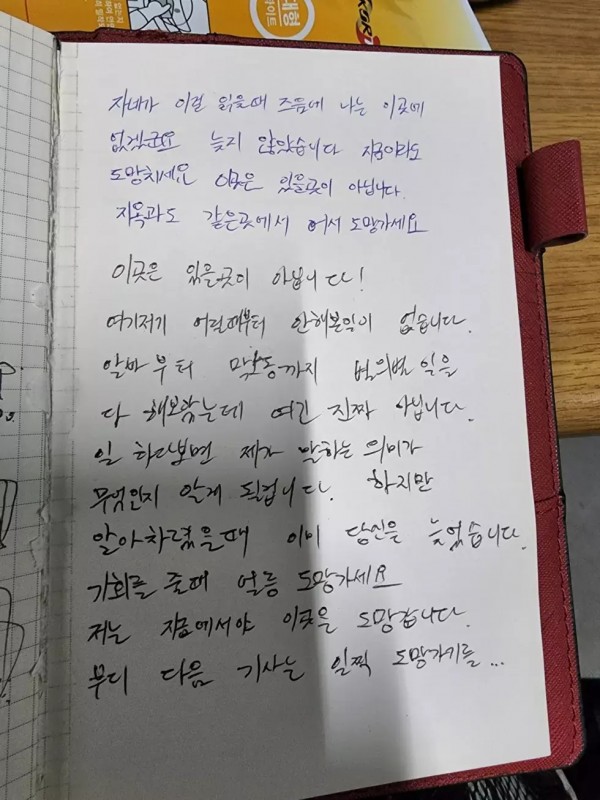 대형
라이트
자네가 이걸 읽을때 즈음에 나는 이곳에
없겠군요 늦지 않았습니다 지금이라도
도망치세요 이곳은 있을곳이 아닙니다.
지옥과도 같은곳에서 어서 도망가세요
이곳은 있을곳이 아닙니다!
여기저기 어릴때부터 안해본일이 없습니다.
알바부터 막노동까지 별의별 일을
다 해보았는데 여긴 진짜 아닙니다.
일 하다보면 제가 말하는 의미가
무엇인지 알게 될겁니다. 하지만
알아차렸을때 이미 당신은 늦었습니다.
기회를 줄때 얼릉 도망가세요
저는 지금에서야 이곳을 도망갑니다.
부디 다음 기사는 일찍 도망가기를...